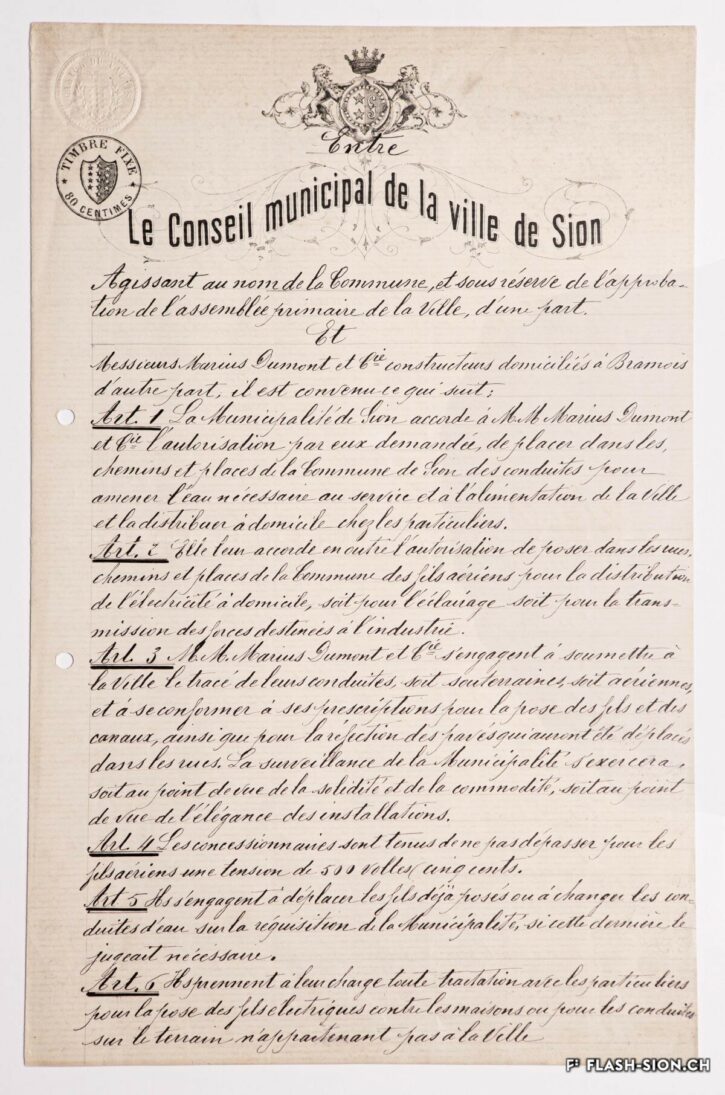 TIMBRE FIXE
80 CENTIMES
Entre
Le Conseil municipal de la ville de Sion
Agissant au nom de la Commune, et sous réserve de l'approba-
tion de l'assemblée primaire de la Ville, d'une part.
Et
Messieurs Marius Dumont et Cie constructeurs domiciliés à Bramois
d'autre part, il est convenu ce qui suit:
Art. 1 La Municipalité de Sion accorde à M.M. Marius Dumont
et Cie l'autorisation par eux demandée, de placer dans les,
chemins et places de la Commune de Sion des conduites pour
amener l'eau nécessaire au service et à l'alimentation de la Ville
et la distribuer à domicile chez les particuliers.
Art. 2 Elle leur accorde en outre l'autorisation de poser dans les rues
chemins et places de la Commune des fils aériens pour la distribution
de l'électricité à domicile, soit pour l'éclairage soit pour la trans-
mission des forces destinées à l'industrie.
Art. 3 M.M. Marius Dumont et Cie s'engagent à soumettre à
la Ville le tracé de leurs conduites, soit souterraines, soit aériennes,
et à se conformer à ses prescriptions pour la pose des fils et des
canaux, ainsi que pour la réfection des pavés qui auront été déplacés
dans les rues. La surveillance de la Municipalité s'exercera,
soit au point de vue de la solidité et de la commodité, soit au point
de vue de l'élégance des installations.
Art. 4 Les concessionnaires sont tenus de ne pas dépasser pour les
fils aériens une tension de 500 voltes (cinq cents.
Art 5 Ils s'engagent à déplacer les fils déjà posés ou à changer les con-
duites d'eau sur la réquisition de la Municipalité, si cette dernière le
jugeait nécessaire.
Art. 6 Ils prennent à leur charge toute tractation avec les particuliers
pour la pose des fils electriques contre les maisons ou pour les conduites
sur le terrain n'appartenant pas à la Ville
FLASH-SION.CH